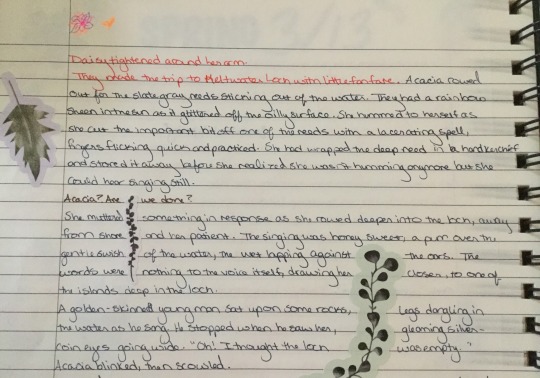 Daisy tightened around her arm.
They made the trip to Meltwater Loch with little fanfare. Acacia rowed
out for the slate gray reeds sticking out of the water. They had a rainbow
sheen in the sun as it glittered off the silty surface. She hummed to herself as
she cut the important bit off one of the reeds with a lacerating spell,
fingers flicking quick and practiced. She had wrapped the deep need in a handkerchief
and stored it away before she realized she wasn't humming anymore but she
could hear singing still.
Acacia? Are we done?
She muttered something in response as she rowed deeper into the loch, away
from shore and her patient. The singing was honey sweet, a purr over the
gentle swish of the water, the wet lapping against the oars. The
words were nothing to the voice itself, drawing her closer, to one of
the islands deep in the loch.
A golden-skinned young man sat upon some rocks, legs dangling in
the water as he sang. He stopped when he saw her, gleaming silver-
coin eyes going wide. "Oh! I thought the loch was empty."
Acacia blinked, then scowled.